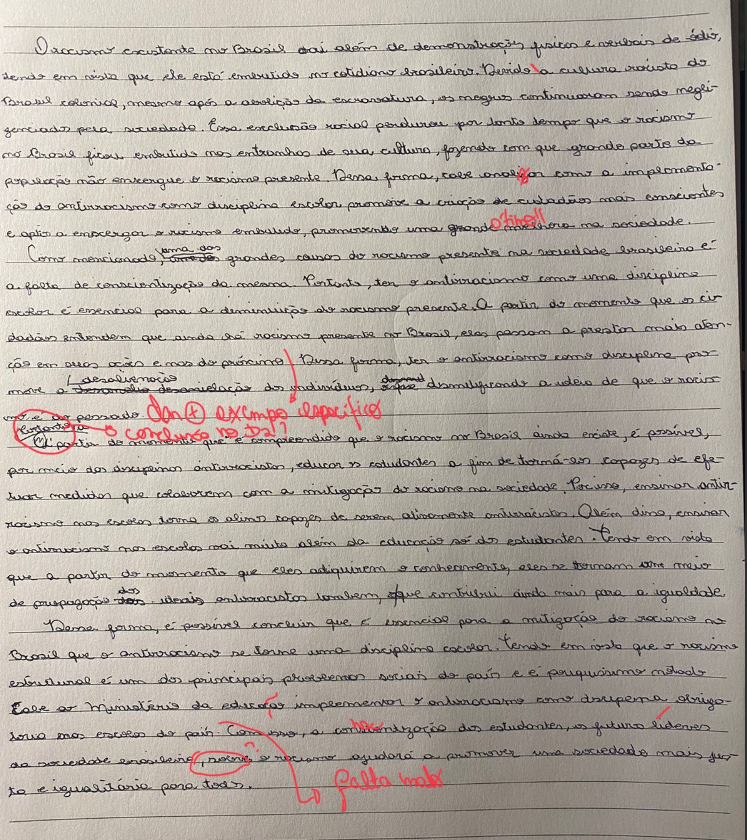 O racismo existente no Brasil vai além de demonstrações físicas e verbais de ódio,
tendo em vista que ele está embutido no cotidiano brasileiro. Devido a cultura racista do
Brasil colonial, mesmo após a abolição da escravatura, os negros continuaram sendo negli-
genciados pela sociedade. Essa exclusão racial perdurou por tanto tempo que o racismo
no Brasil ficou embutido nas entranhas de sua cultura, fazendo com que grande parte da
população não enxergue o racismo presente. Dessa forma, cabe analisar como a implementa-
ção do antirracismo como disciplina escolar promove a criação de cidadãos mais conscientes
e aptos a enxergar o racismo embutido, promovendo uma grande na sociedade.
Ótimo!!
Como mencionado, uma das grandes causas do racismo presente na sociedade brasileira é
a falta de conscientização da mesma. Portanto, ter o antirracismo como uma disciplina
escolar é essencial para a deminuição do racismo presente. A partir do momento que os ci-
dadãos entendem que ainda há racismo presente no Brasil, eles passam a prestar mais aten-
ção em suas ações e nas do próximo. Dessa forma, ter o antirracismo como disciplina pro-
move a desalienação dos indivíduos, desmitificando a ideia de que o racis-
mo é do passado.
dar + exemplo específico
conclusão no D2!?
A partir do momento que é compreendido que o racismo no Brasil ainda existe, é possível,
por meio das disciplinas antirracistas, educar os estudantes a fim de torná-los capazes de efe-
tuar medidas que colaborem com a mitigação do racismo na sociedade. Por isso, ensinar antir-
racismo nas escolas torna os alunos capazes de serem ativamente antirracistas. Além disso, ensinar
o antirracismo nas escolas vai muito além da educação só dos estudantes. Tendo em vista
que a partir do momento que eles adquirem o conhecimento, eles se tornam um meio
de propagação dos ideais antirracistas também, que contribui ainda mais para a igualdade.
Dessa forma, é possível concluir que é essencial para a mitigação do racismo no
Brasil que o antirracismo se torne uma disciplina escolar. Tendo em vista que o racismo
estrutural é um dos principais problemas sociais do país e é
Cabe ao Ministério da educação implementar o antirracismo como disciplina obriga-
tória nas escolas do país. Com isso, a dos estudantes, os futuros líderes
da sociedade brasileira, o racismo ajudará a promover uma sociedade mais jus-
ta e igualitária para todos.
falta